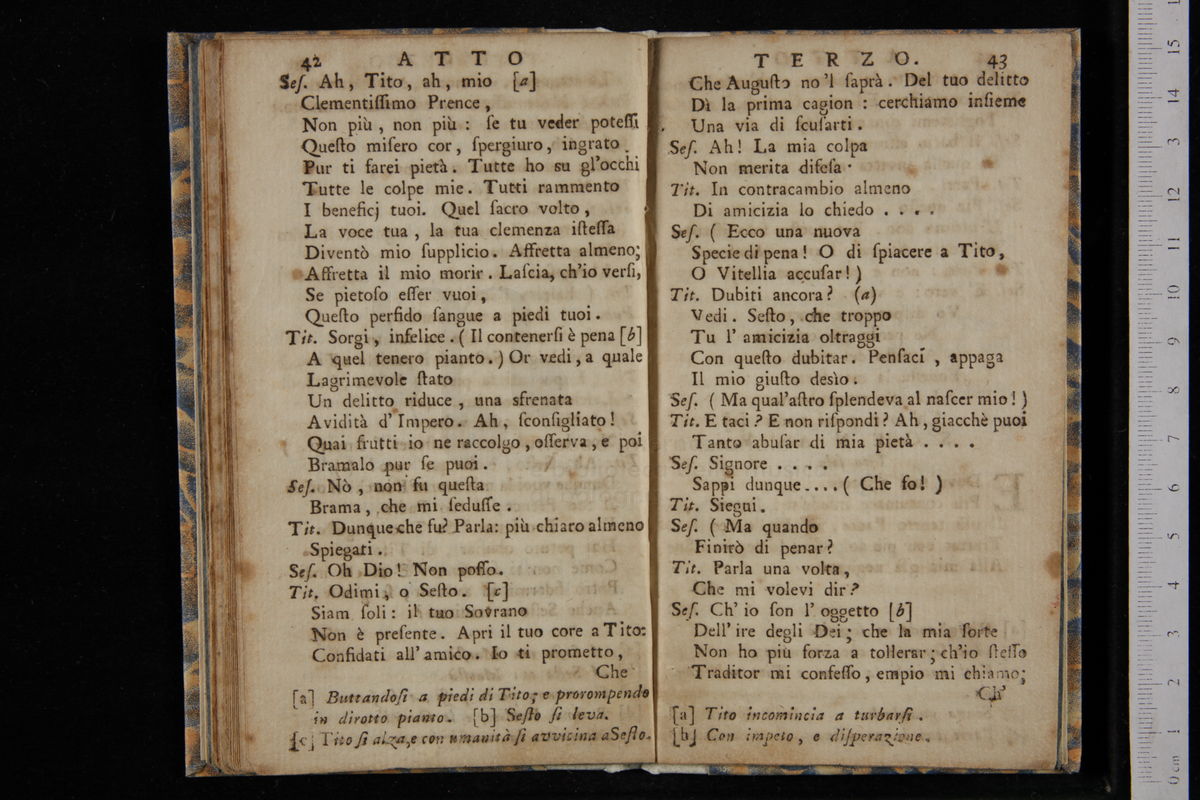 42 ATTO
Seſ. Ah, Tito, ah, mio [a]
Clementiſſimo Prence,
Non più, non più: ſe tu veder poteſſi
Queſto miſero cor, ſpergiuro, ingrato
Pur ti farei pietà. Tutte ho su gl'occhi
Tutte le colpe mie. Tutti rammento
I beneficj tuoi. Quel ſacro volto,
La voce tua, la tua clemenza iſteſſa
Diventò mio ſupplicio. Affretta almeno;
Affretta il mio morir. Laſcia, ch'io verſi,
Se pietoſo eſſer vuoi,
Queſto perfido ſangue a piedi tuoi.
Tit. Sorgi, infelice. (Il contenerſi è pena [b]
A quel tenero pianto.) Or vedi, a quale
Lagrimevole ſtato
Un delitto riduce, una sfrenata
Avidità d'Impero. Ah, ſconſigliato!
Quai frutti io ne raccolgo, oſſerva, e poi
Bramalo pur ſe puoi.
Seſ. Nò, non fu queſta
Brama, che mi ſeduſſe.
Tit. Dunque che fu? Parla: più chiaro almeno
Spiegati.
Seſ. Oh Dio! Non poſſo.
Tit. Odimi, o Seſto. [c]
Siam ſoli: il tuo Sovrano
Non è preſente. Apri il tuo core a Tito:
Confidati all'amico. Io ti prometto,
Che
[a] Buttandoſi a piedi di Tito; e prorompendo
in dirotto pianto. [b] Seſto ſi leva.
[c] Tito ſi alza, e con umanità ſi avvicina a Seſto.
TERZO. 43
Che Auguſto no'l ſaprà. Del tuo delitto
Dì la prima cagion: cerchiamo inſieme
Una via di ſcuſarti.
Seſ. Ah! La mia colpa
Non merita difeſa.
Tit. In contracambio almeno
Di amicizia lo chiedo....
Seſ. (Ecco una nuova
Specie di pena! O di ſpiacere a Tito,
O Vitellia accuſar!)
Tit. Dubiti ancora? (a)
Vedi. Seſto, che troppo
Tu l'amicizia oltraggi
Con queſto dubitar. Penſaci, appaga
Il mio giuſto desìo.
Seſ. (Ma qual'aſtro ſplendeva al naſcer mio!)
Tit. E taci? E non riſpondi? Ah, giacchè puoi
Tanto abuſar di mia pietà....
Seſ. Signore....
Sappi dunque....(Che fo!)
Tit. Siegui.
Seſ. (Ma quando
Finirò di penar?
Tit. Parla una volta,
Che mi volevi dir?
Seſ. Ch'io ſon l'oggetto [b]
Dell'ire degli Dei; che la mia ſorte
Non ho più forza a tollerar; ch'io ſteſſo
Traditor mi confeſſo, empio mi chiamo;
Ch'
[a] Tito incomincia a turbarſi.
[b] Con impeto, e diſperazione.